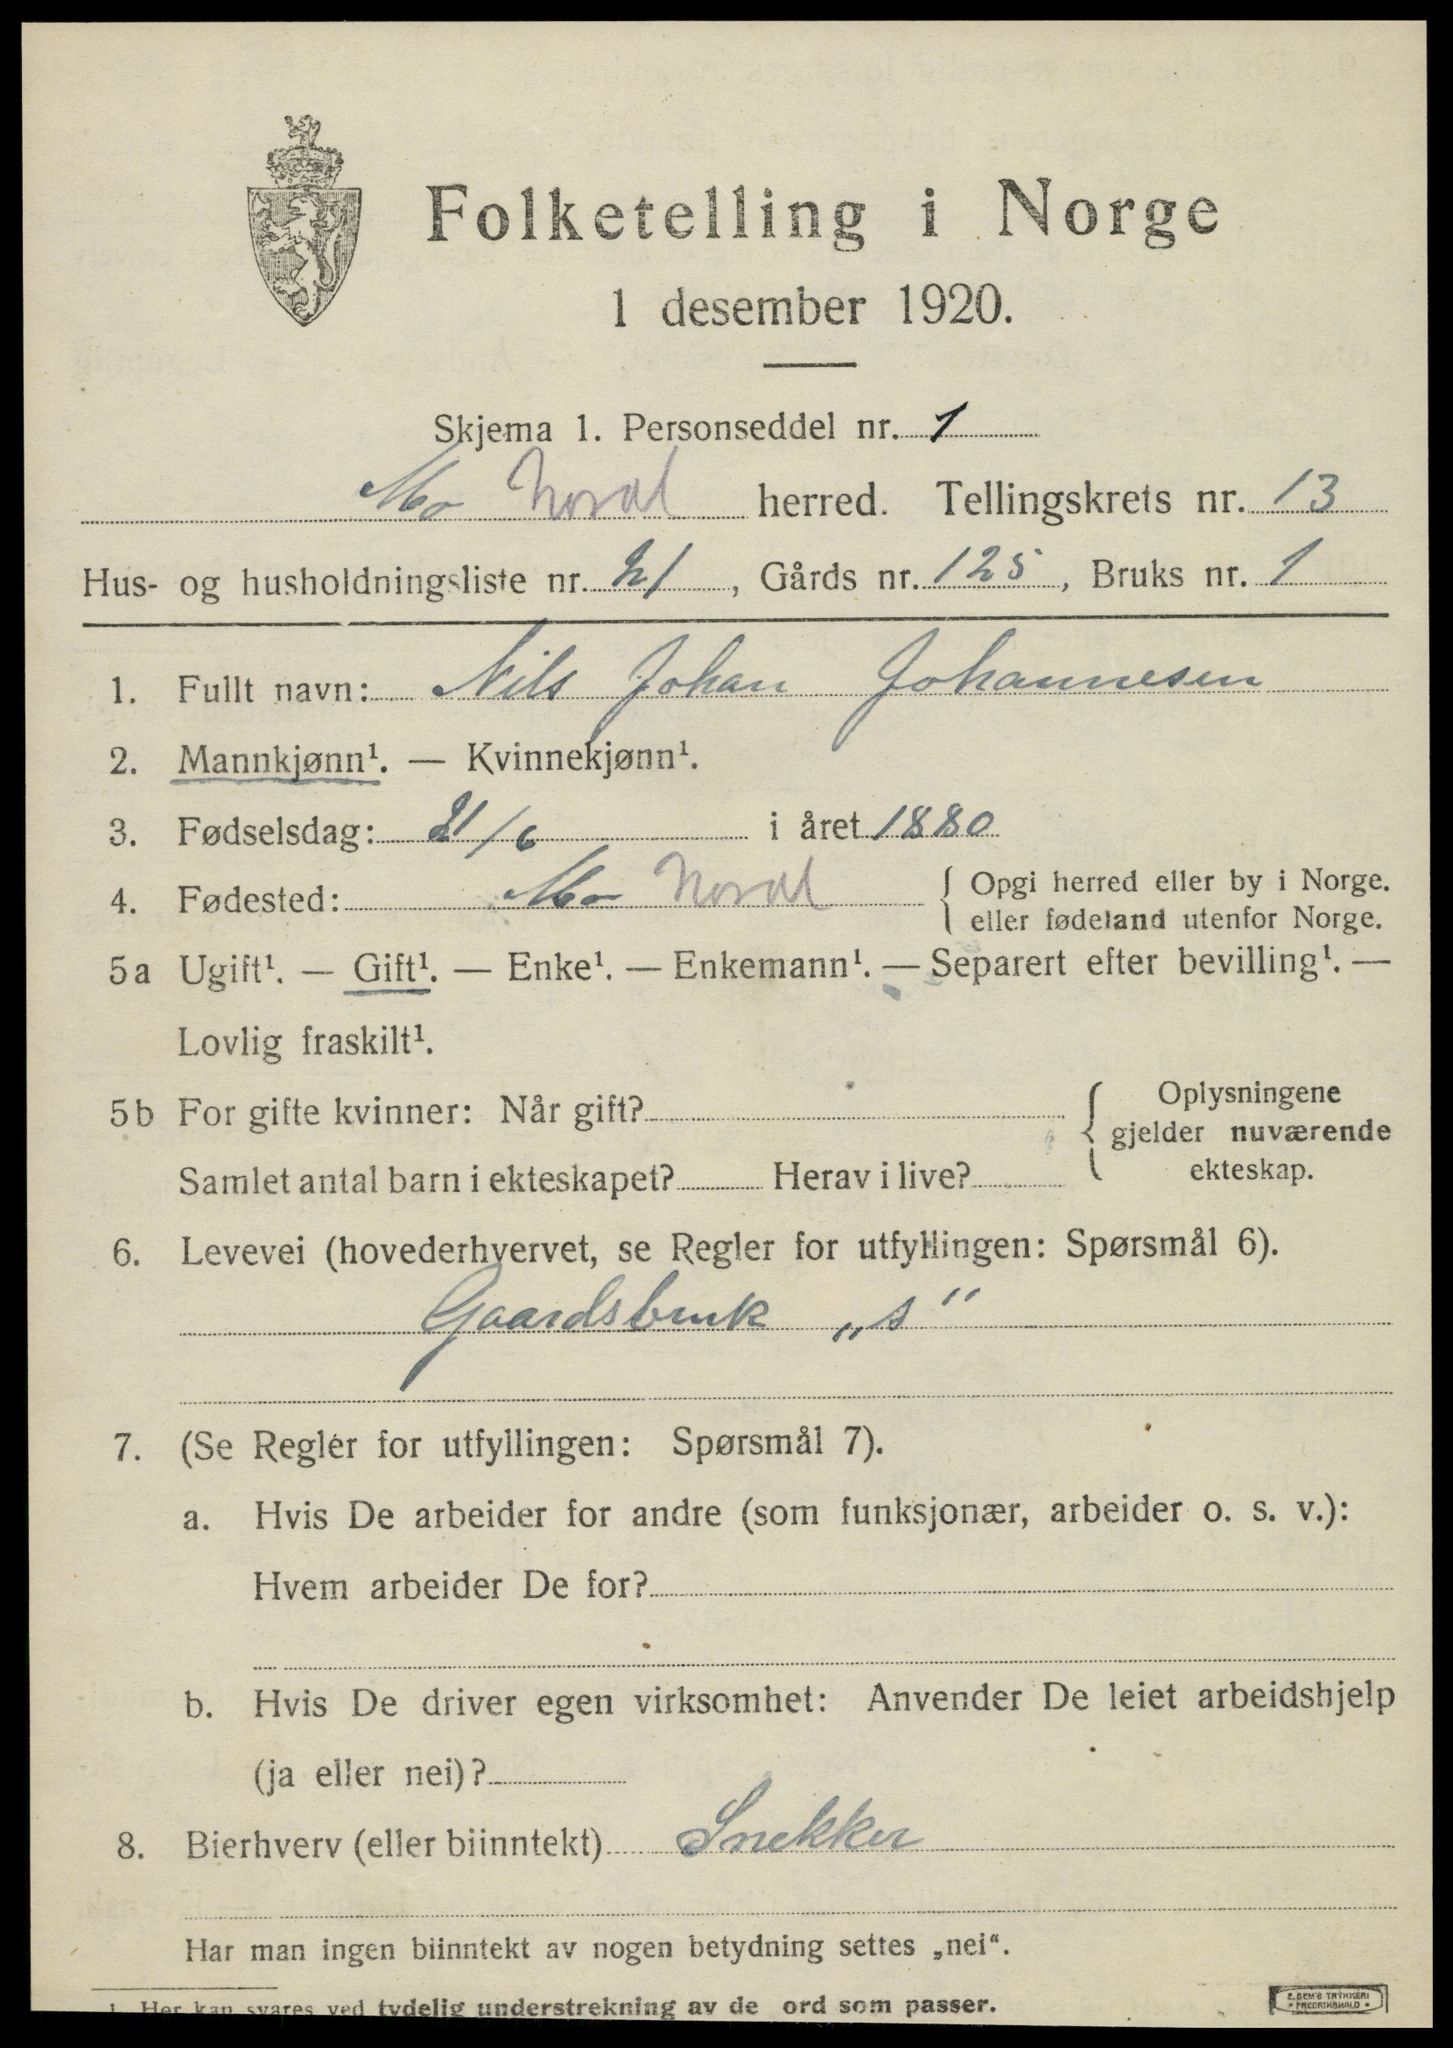 Folketelling i Norge
1 desember 1920.
Skjema 1. Personseddel nr. 1
Mo Nordl herred. Tellingskrets nr. 13
Hus- og husholdningsliste nr. 21, Gårds nr. 125, Bruks nr. 1
1. Fullt navn: Nils Johan Johannesen
2. Mannkjønn¹. — Kvinnekjønn¹.
3. Fødselsdag: 21/6 i året 1880
4. Fødested: Mo Nordl { Opgi herred eller by i Norge.
eller fødeland utenfor Norge.
5a Ugift¹. — Gift¹. — Enke¹. — Enkemann¹. — Separert efter bevilling¹. —
Lovlig fraskilt¹.
5b For gifte kvinner: Når gift? { Oplysningene
gjelder nuværende
ekteskap.
Samlet antal barn i ekteskapet? Herav i live?
6. Levevei (hovederhvervet, se Regler for utfyllingen: Spørsmål 6).
Gaardsbruk „s"
7. (Se Regler for utfyllingen: Spørsmål 7).
a. Hvis De arbeider for andre (som funksjonær, arbeider o. s. v.):
Hvem arbeider De for?
b. Hvis De driver egen virksomhet: Anvender De leiet arbeidshjelp
(ja eller nei)?
8. Bierhverv (eller biinntekt) Snekker
Har man ingen biinntekt av nogen betydning settes „nei“.
1. Her kan svares ved tydelig understrekning av de ord som passer.
E. SEM'S TRYKKERI
• FREDRIKSHALD •